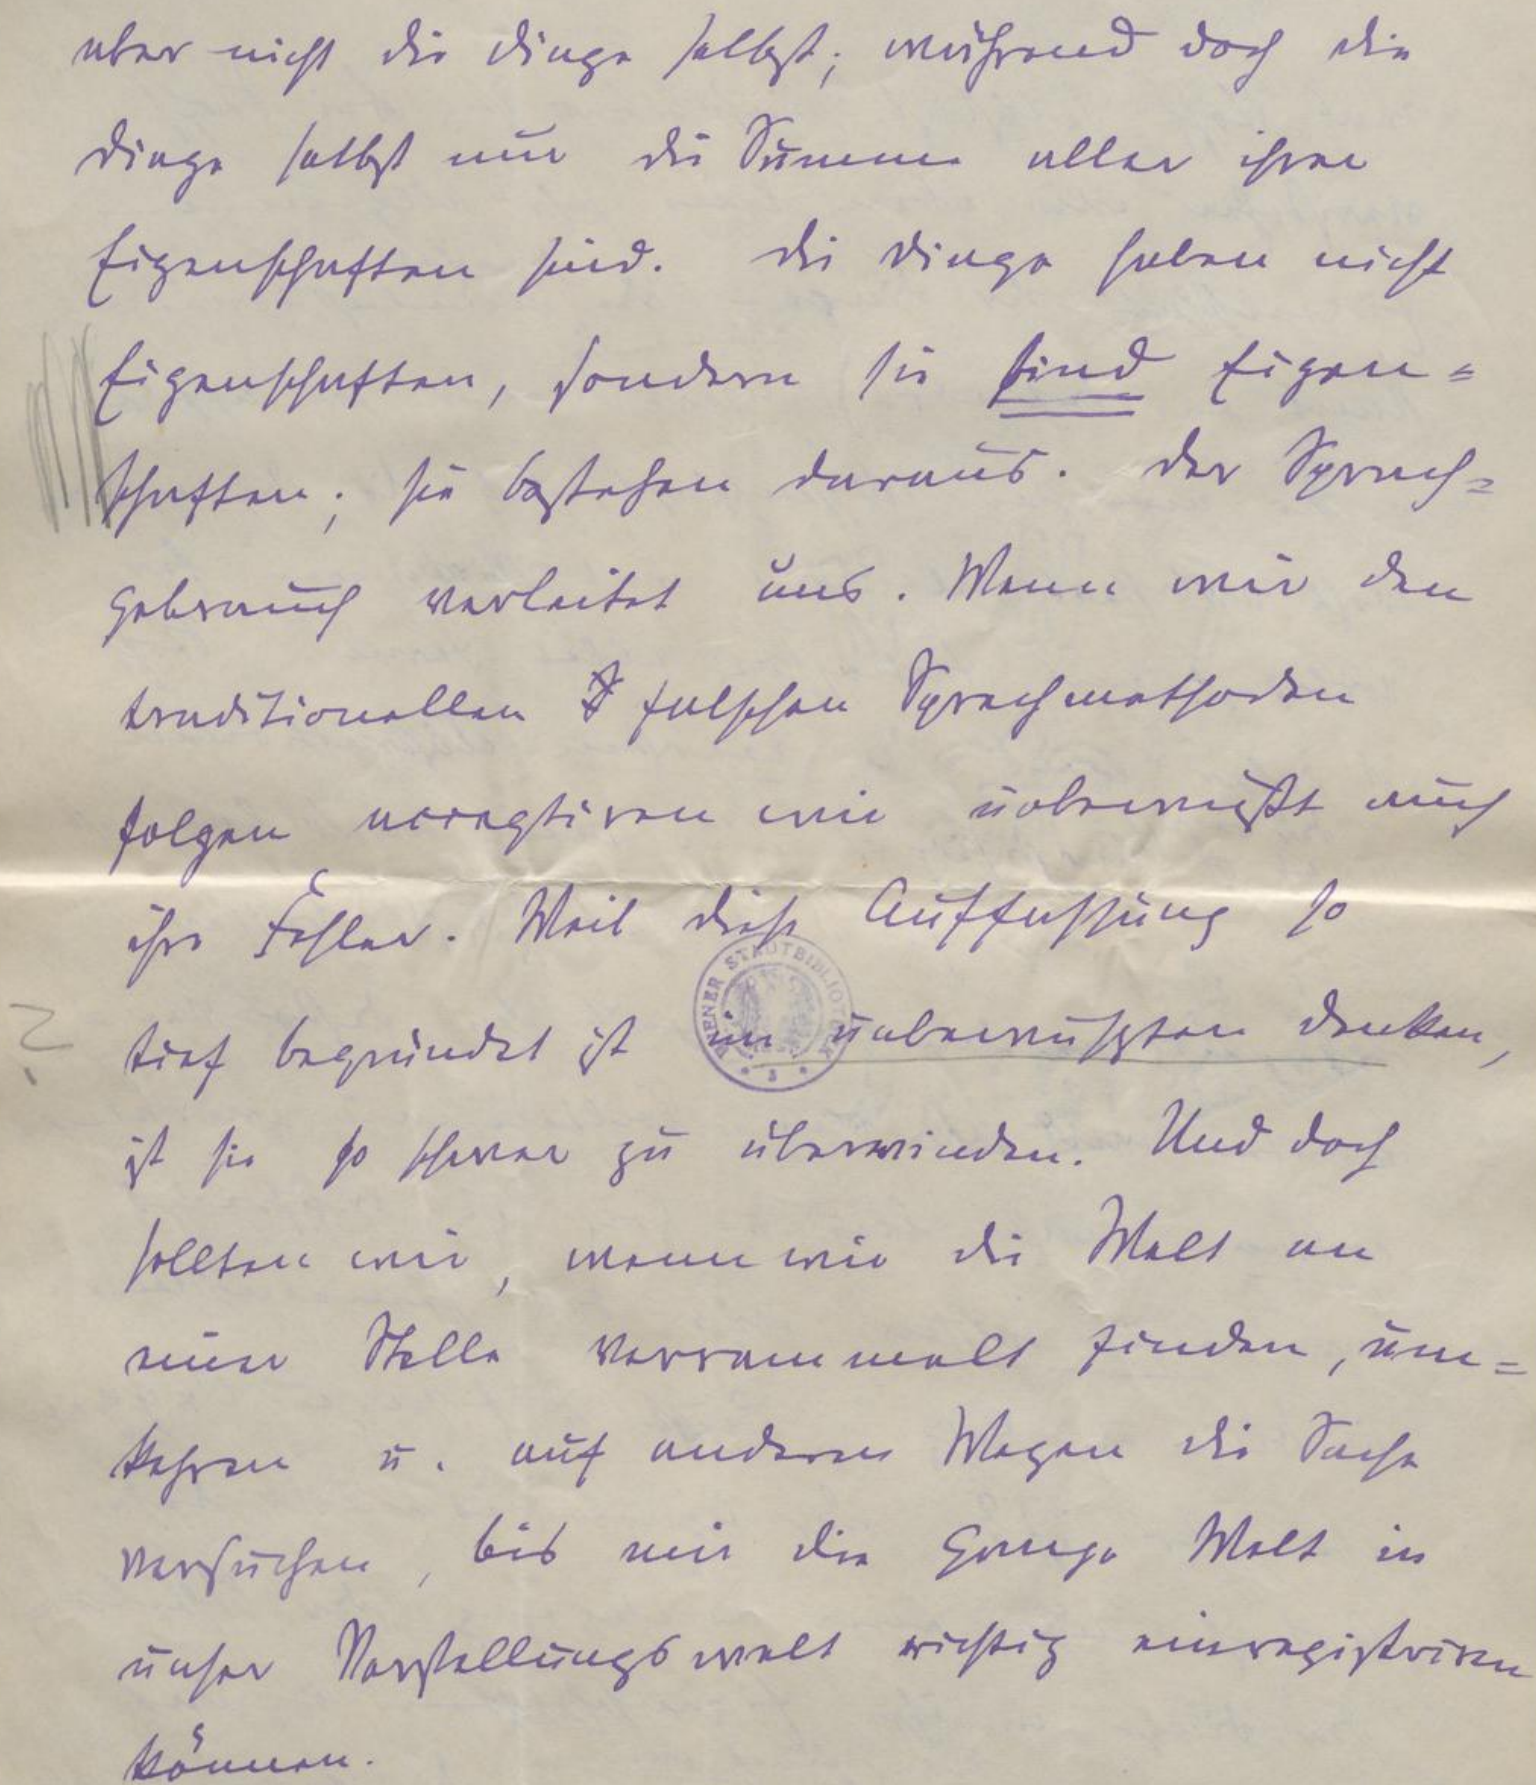 aber nicht die Dinge selbst; während doch die
Dinge selbst nur die Summe aller ihrer
Eigenschaften sind. Die Dinge haben nicht
Eigenschaften, sondern sie sind Eigen=
schaften; sie bestehen daraus. Der Sprach=
gebrauch verleitet uns. Wenn wir den
traditionellen falschen Sprachmethoden
folgen acceptiren wir unbewußt auch
ihre Fehler. Weil diese Auffassung so
tief begründet ist im unbewussten Denken,
WIENER STADTBIBLIOTHEK
ist sie so schwer zu überwinden. Und doch
sollten wir, wenn wir die Welt an
einer Stelle verrammelt finden, um=
kehren u. auf anderen Wegen die Sache
versuchen, bis wir die ganze Welt in
unser Vorstellungswelt richtig einregistriren
können.